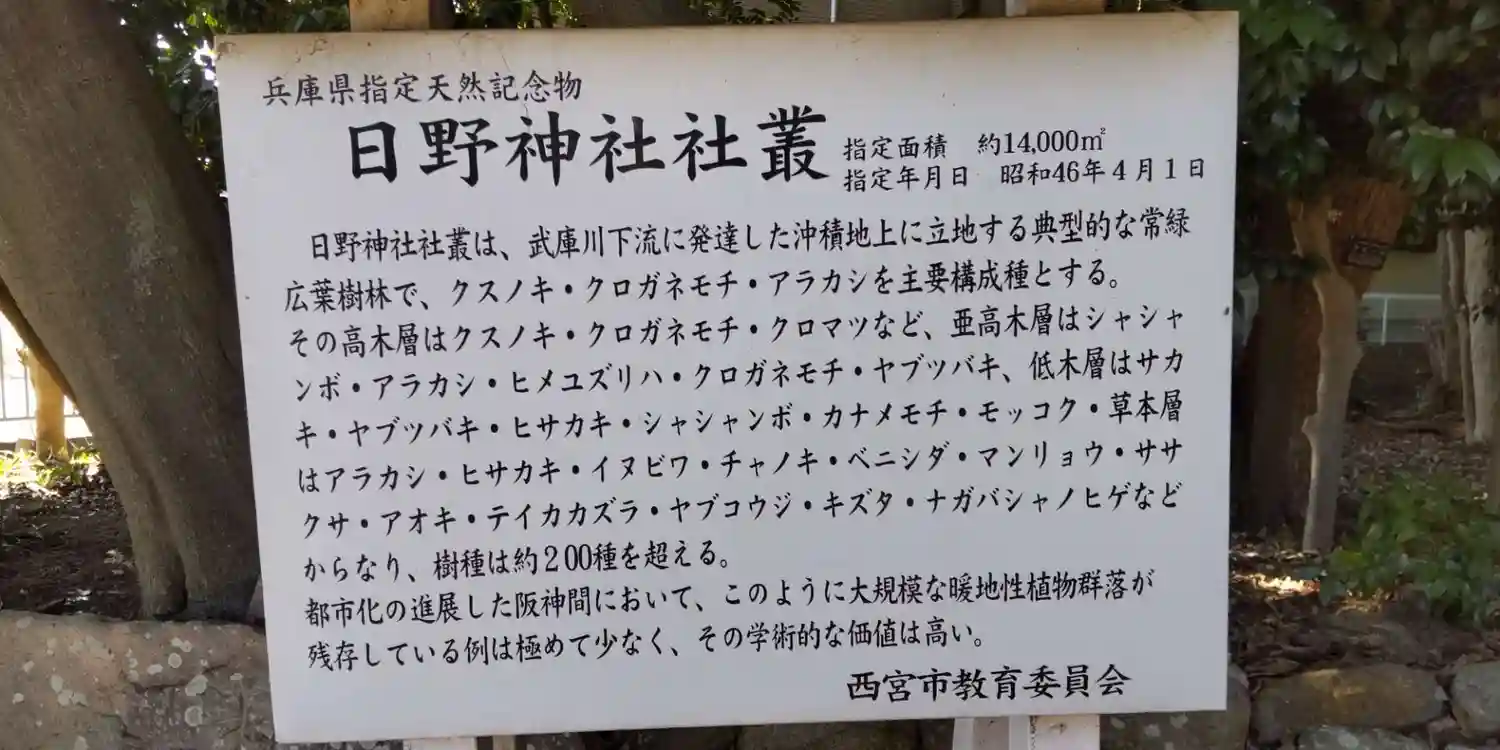 兵庫県指定天然記念物
日野神社社叢
指定面積　約14,000㎡
指定年月日　昭和46年４月１日
日野神社社叢は、武庫川下流に発達した沖積地上に立地する典型的な常緑
広葉樹林で、クスノキ・クロガネモチ・アラカシを主要構成種とする。
その高木層はクスノキ・クロガネモチ・クロマツなど、亜高木層はシャシャ
ンボ・アラカシ・ヒメユズリハ・クロガネモチ・ヤブツバキ、低木層はサカ
キ・ヤブツバキ・ヒサカキ・シャシャンボ・カナメモチ・モッコク・草本層
はアラカシ・ヒサカキ・イヌビワ・チャノキ・ベニシダ・マンリョウ・ササ
クサ・アオキ・テイカカズラ・ヤブコウジ・キズタ・ナガバシャノヒゲなど
からなり、樹種は約２００種を超える。
都市化の進展した阪神間において、このように大規模な暖地性植物群落が
残存している例は極めて少なく、その学術的な価値は高い。
西宮市教育委員会